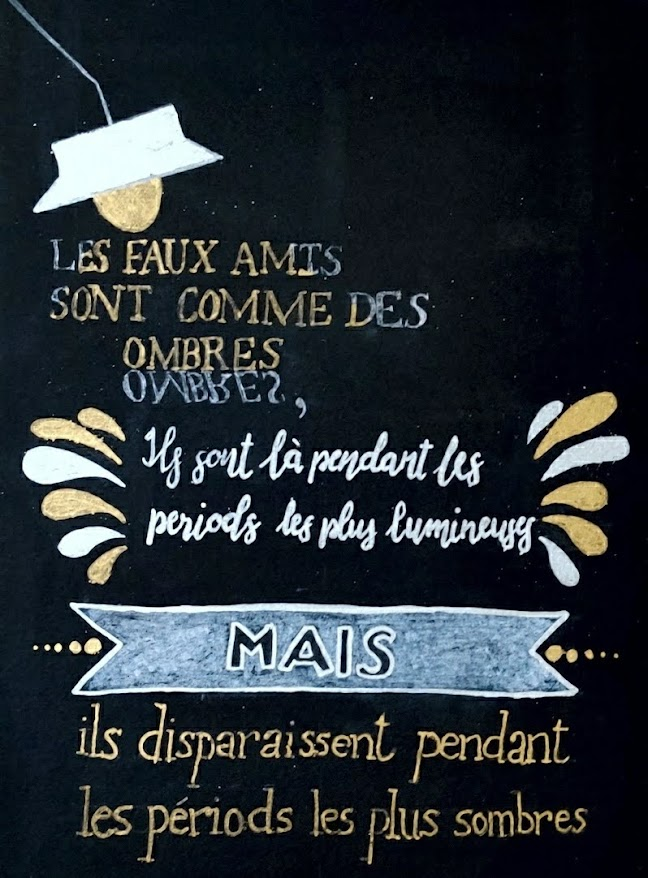 LES FAUX AMIS
SONT COMME DES
OMBRES
OMBRES,
Ils sont là pendant les
periods les plus lumineuses
MAIS
ils disparaissent pendant
les périods les plus sombres